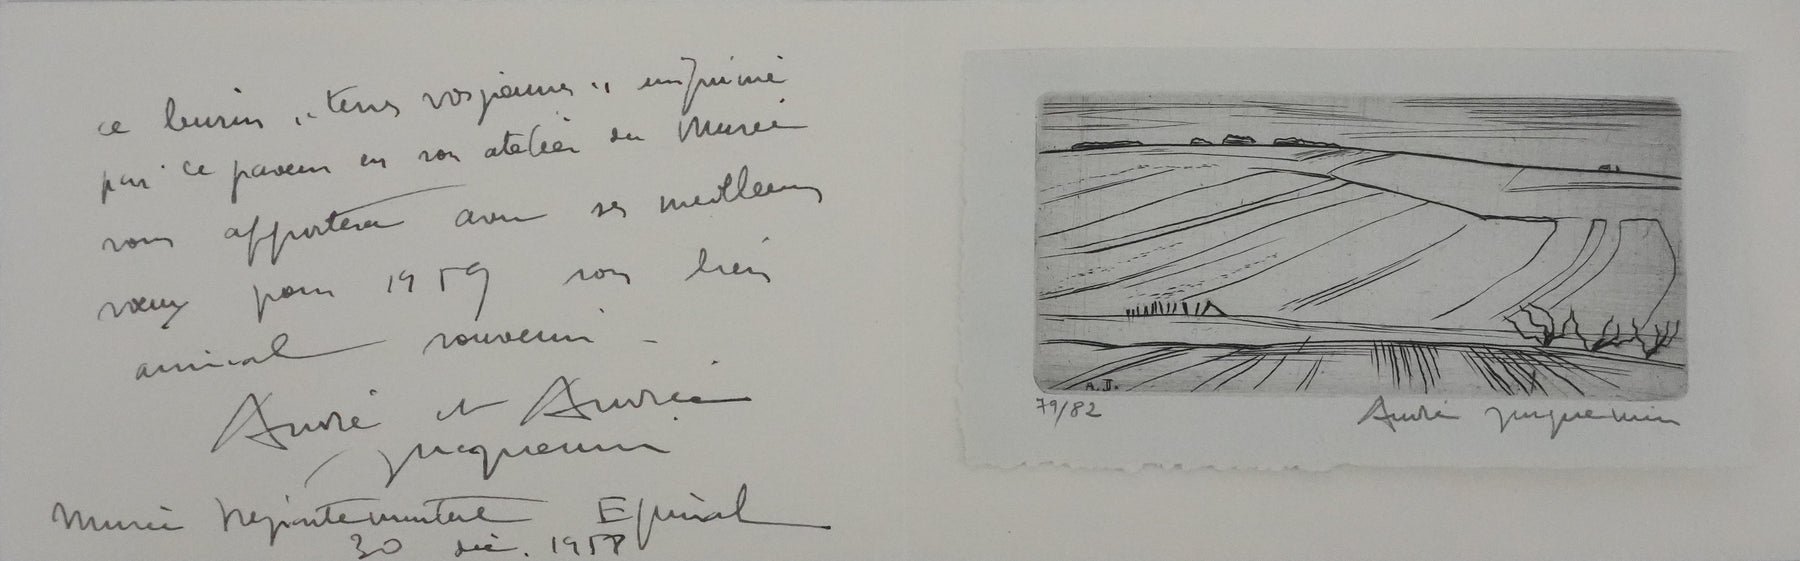 ce burin "terres vosgiennes" imprimé
par ce graveur en son atelier du Musée
vous apportera avec ses meilleurs
vœux pour 1959 son bien
amical souvenir -
André et Andrée
Jacquemin
Musée Départemental Epinal
30 déc. 1958
A.J.
79/82
André Jacquemin